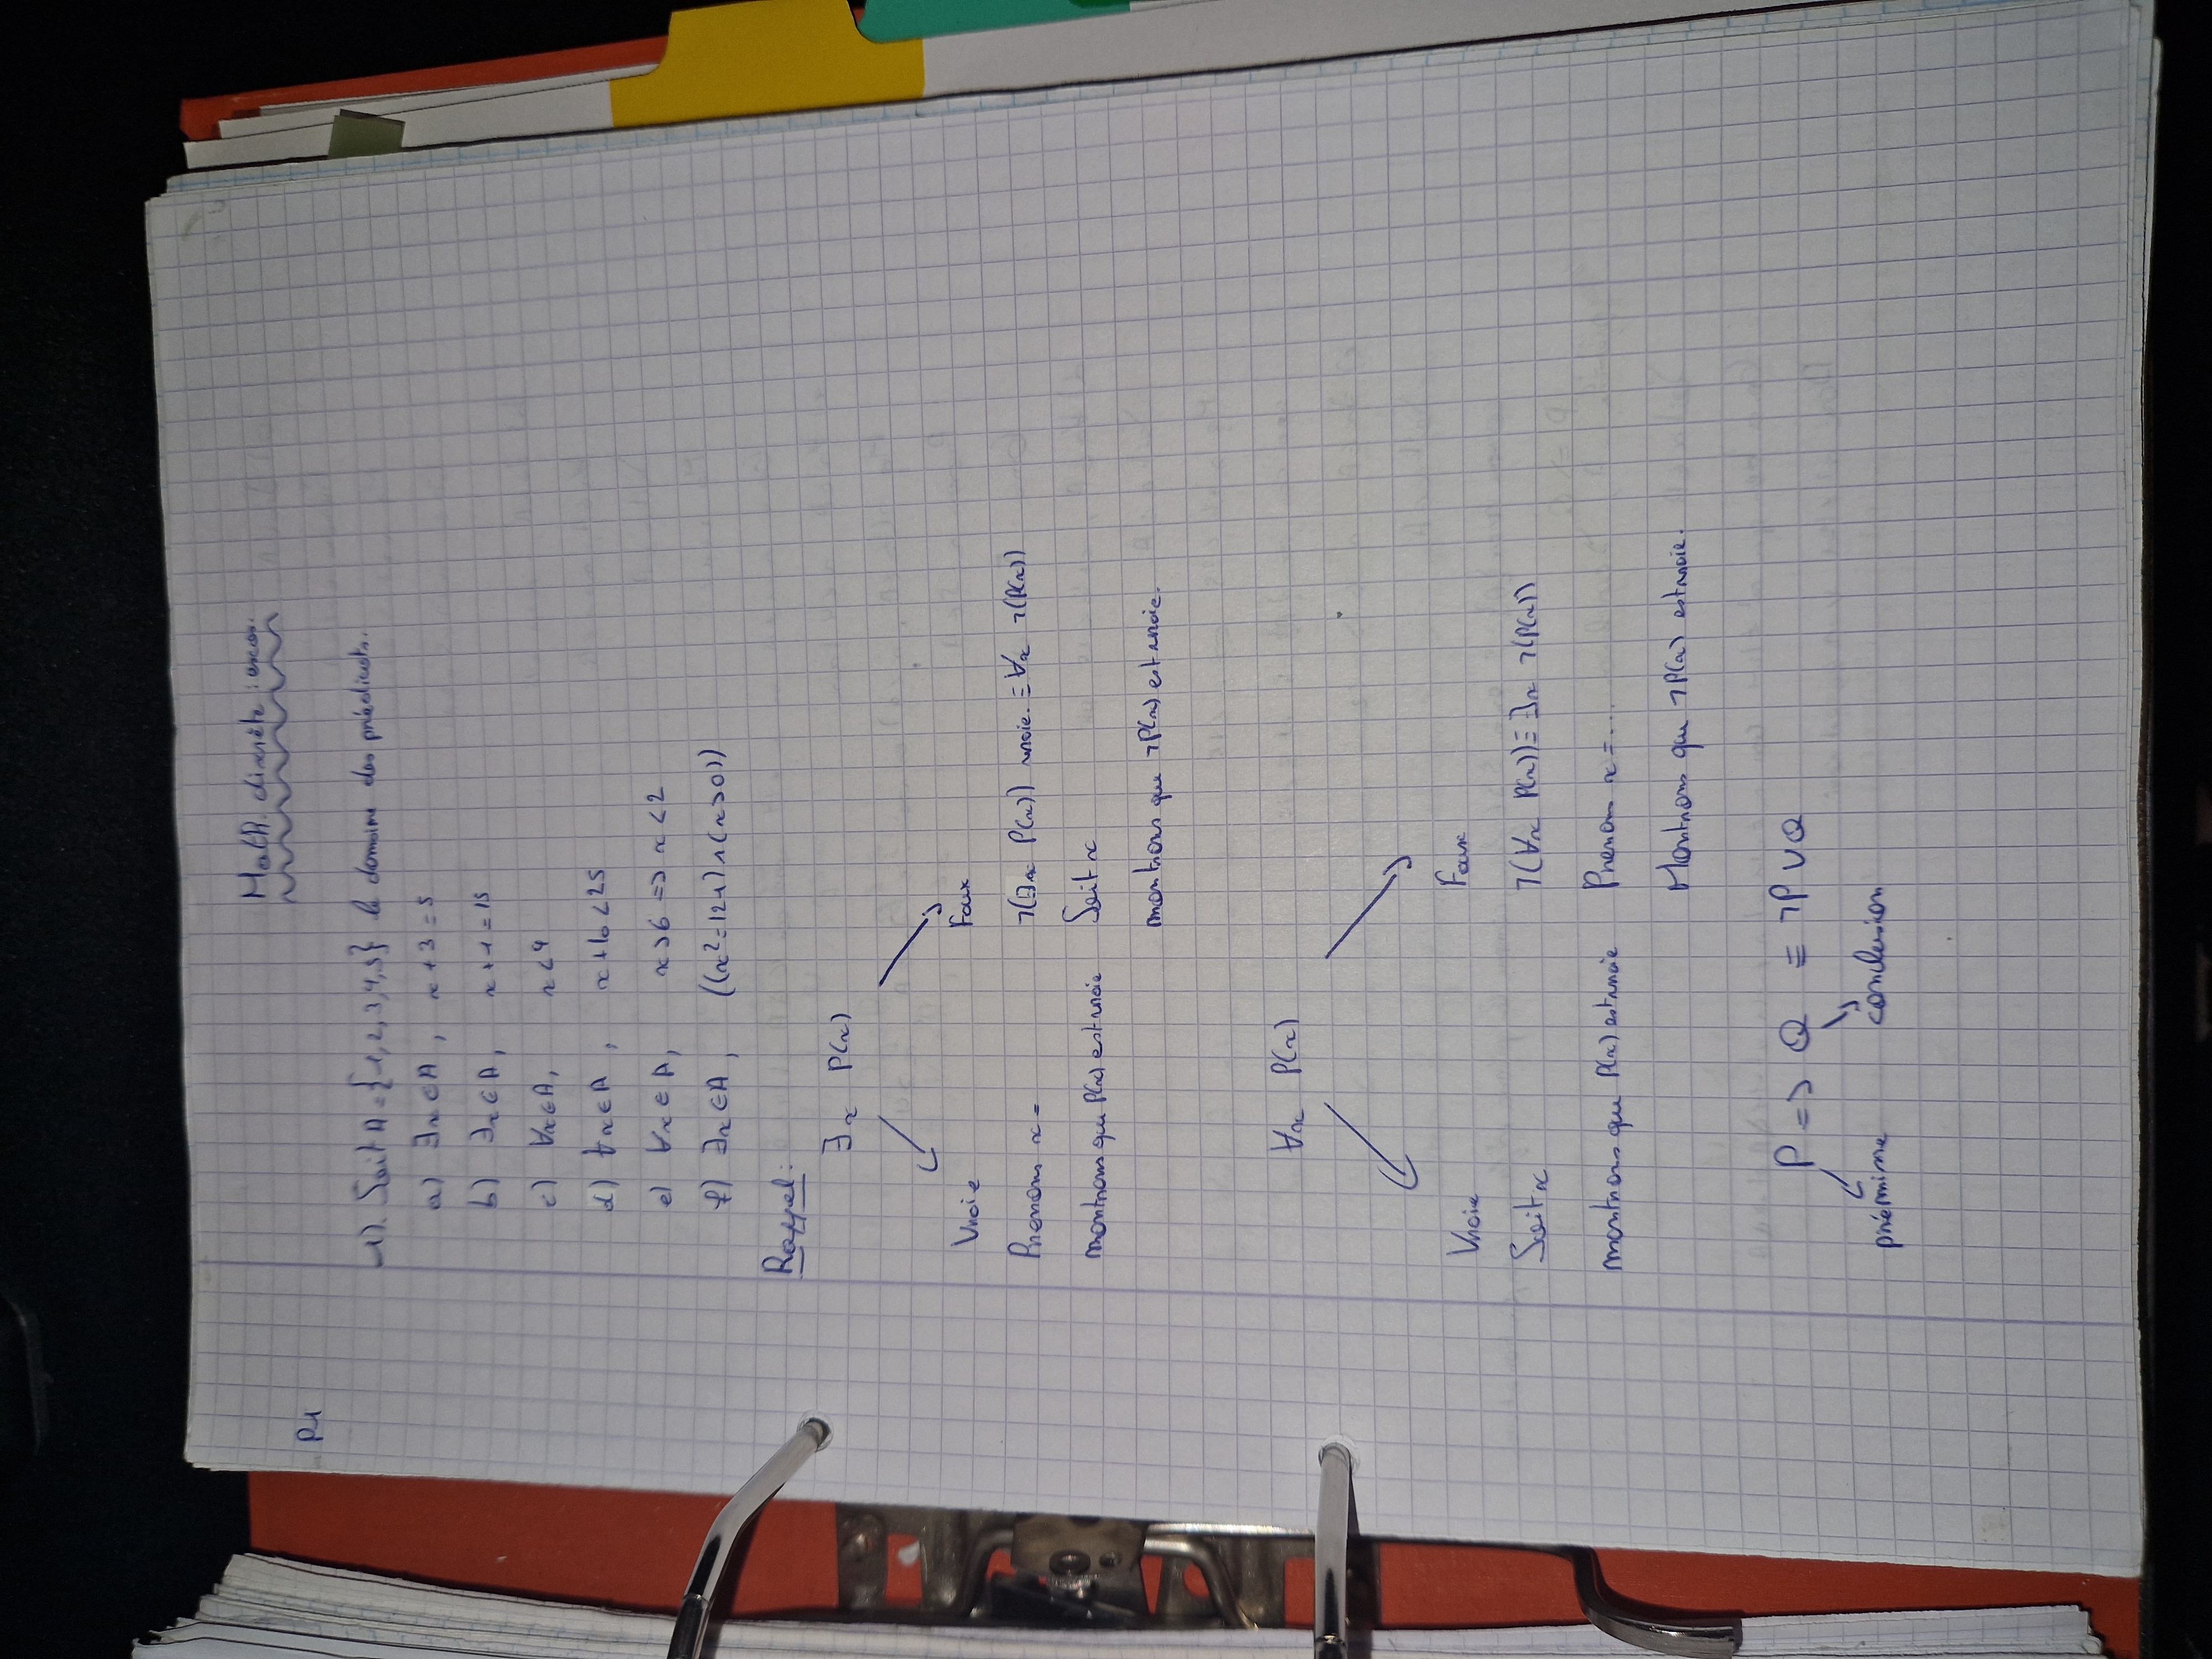 Math. discrète : exos.
P1
1). Soit A = {1, 2, 3, 4, 5} le domaine des prédicats.
a) ∃x ∈ A , x + 3 = 5
b) ∃x ∈ A, x + 1 = 15
c) ∀x ∈ A, x < 4
d) ∀x ∈ A , x + 10 < 25
e) ∀x ∈ A, x > 6 => x < 2
f) ∃x ∈ A, ((x² = 121) ∧ (x > 0))
Rappel :
∃x P(x)
Vraie Faux
Prenons x = ¬(∃x P(x)) vraie. ≡ ∀x ¬(P(x))
montrons que P(x) est vraie Soit x
montrons que ¬P(x) est vraie.
∀x P(x)
Vraie Faux
Soit x ¬(∀x P(x)) ≡ ∃x ¬(P(x))
montrons que P(x) est vraie Prenons x = ...
Montrons que ¬P(x) est vraie.
P => Q ≡ ¬P ∨ Q
prémisse conclusion